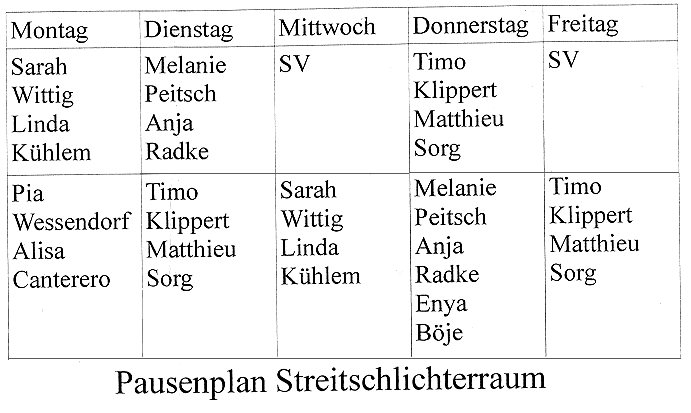 Montag Dienstag Mittwoch Donnerstag Freitag
Sarah Melanie SV Timo SV
Wittig Peitsch Klippert
Linda Anja Matthieu
Kühlem Radke Sorg
Pia Timo Sarah Melanie Timo
Wessendorf Klippert Wittig Peitsch Klippert
Alisa Matthieu Linda Anja Matthieu
Canterero Sorg Kühlem Radke Sorg
Enya
Böje
Pausenplan Streitschlichterraum